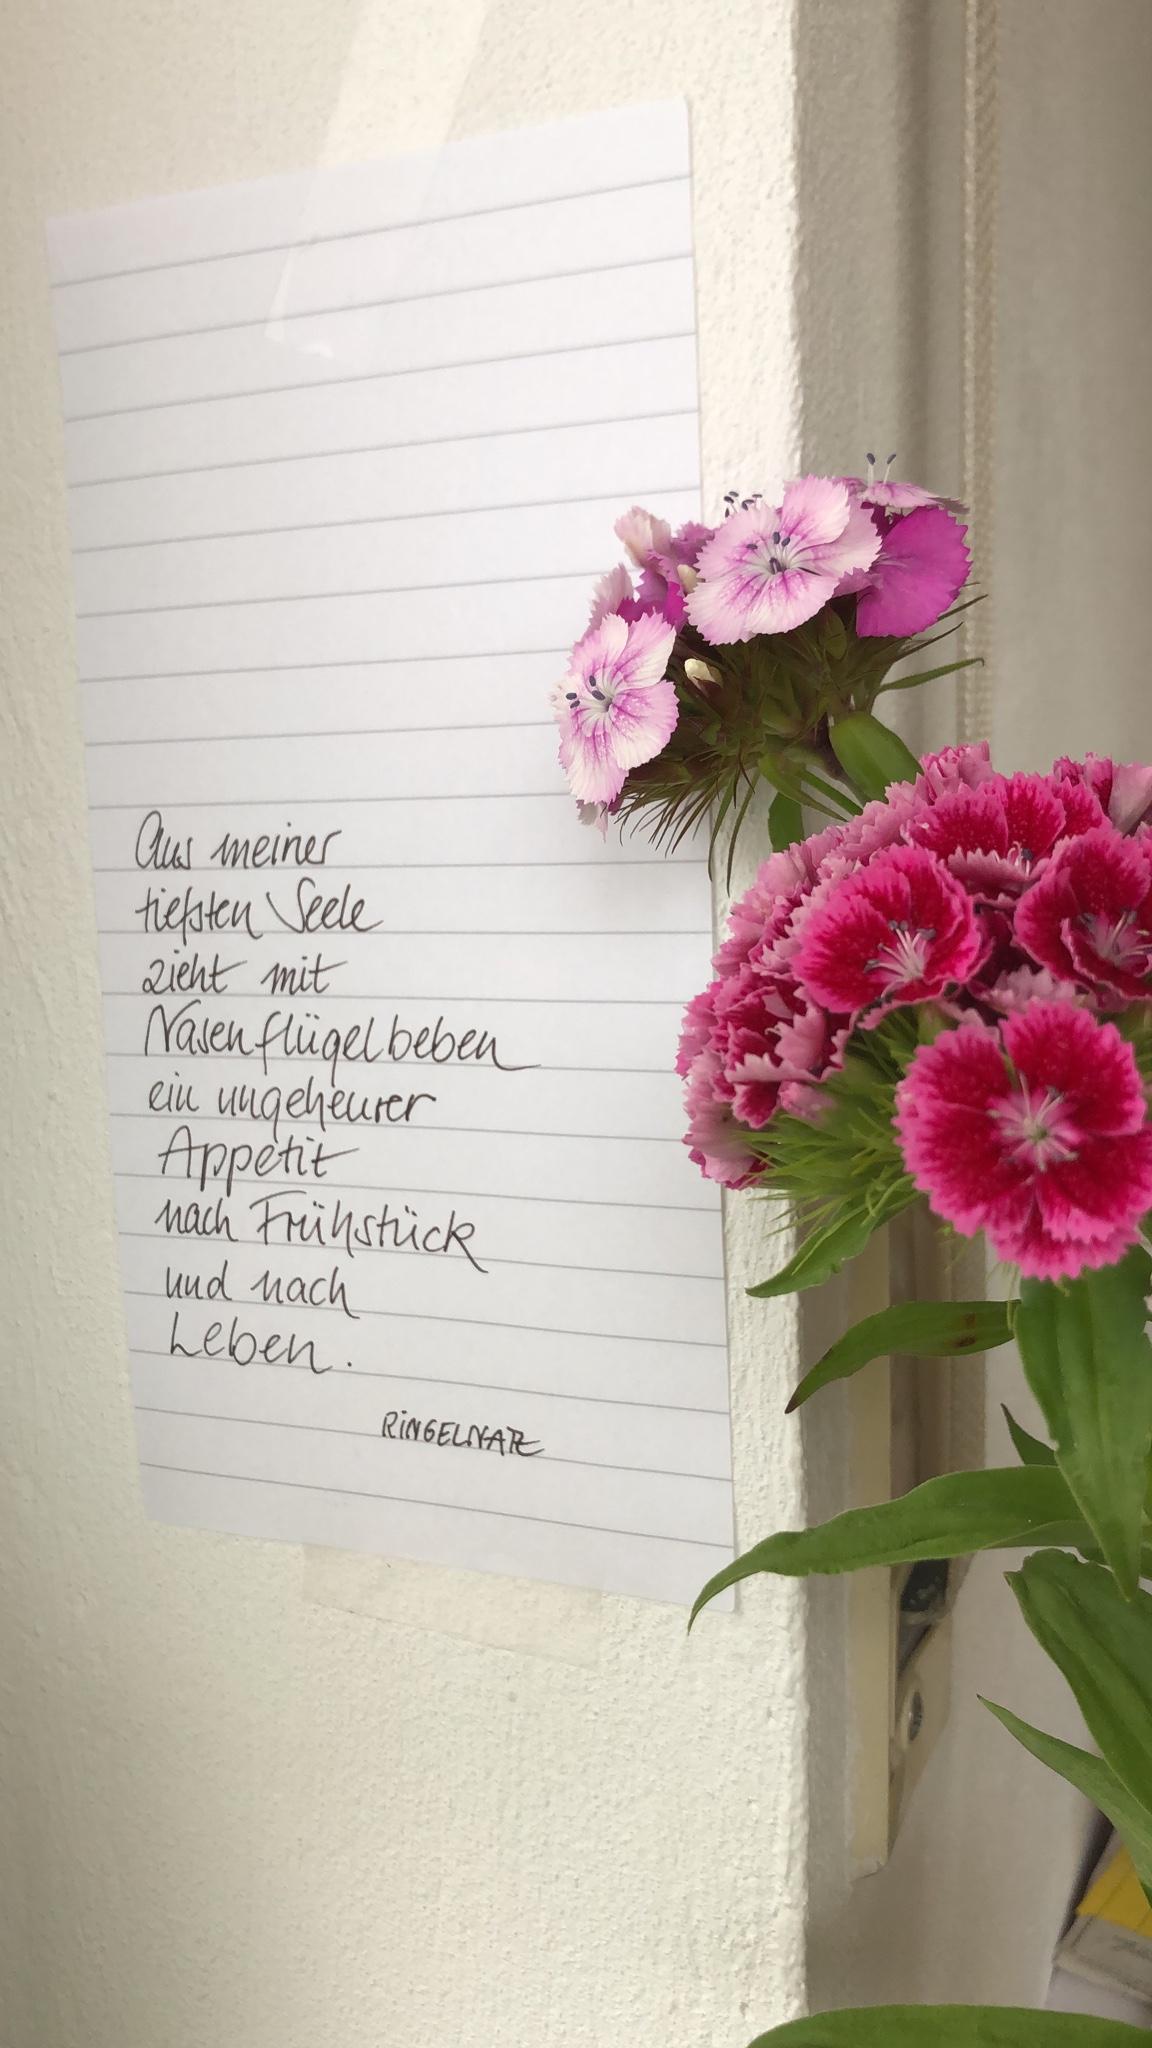 Aus meiner
tiefsten Seele
zieht mit
Nasenflügelbeben
ein ungeheurer
Appetit
nach Frühstück
und nach
Leben.
RiNGELNATZ